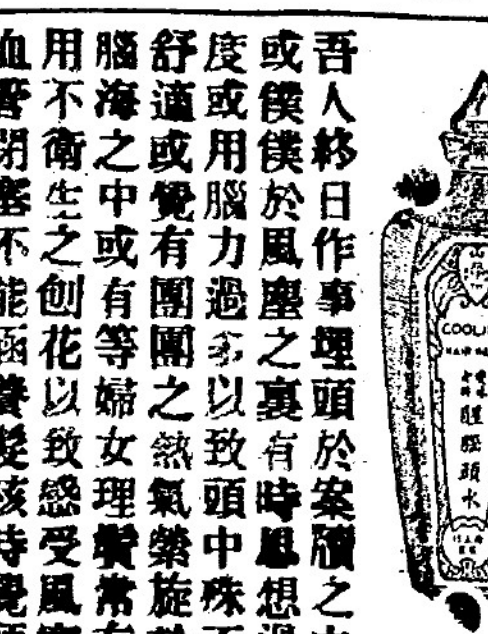 吾人終日作事埋頭於案牘之
或僕僕於風塵之裏有時思想過
度或用腦力過多以致頭中殊不
舒適或覺有團團之熱氣縈旋
腦海之中或有等婦女理鬢常有
用不衛生之刨花以致感受風
血管閉塞不能涵養髮
COOLI
HAIR
醒腦頭水